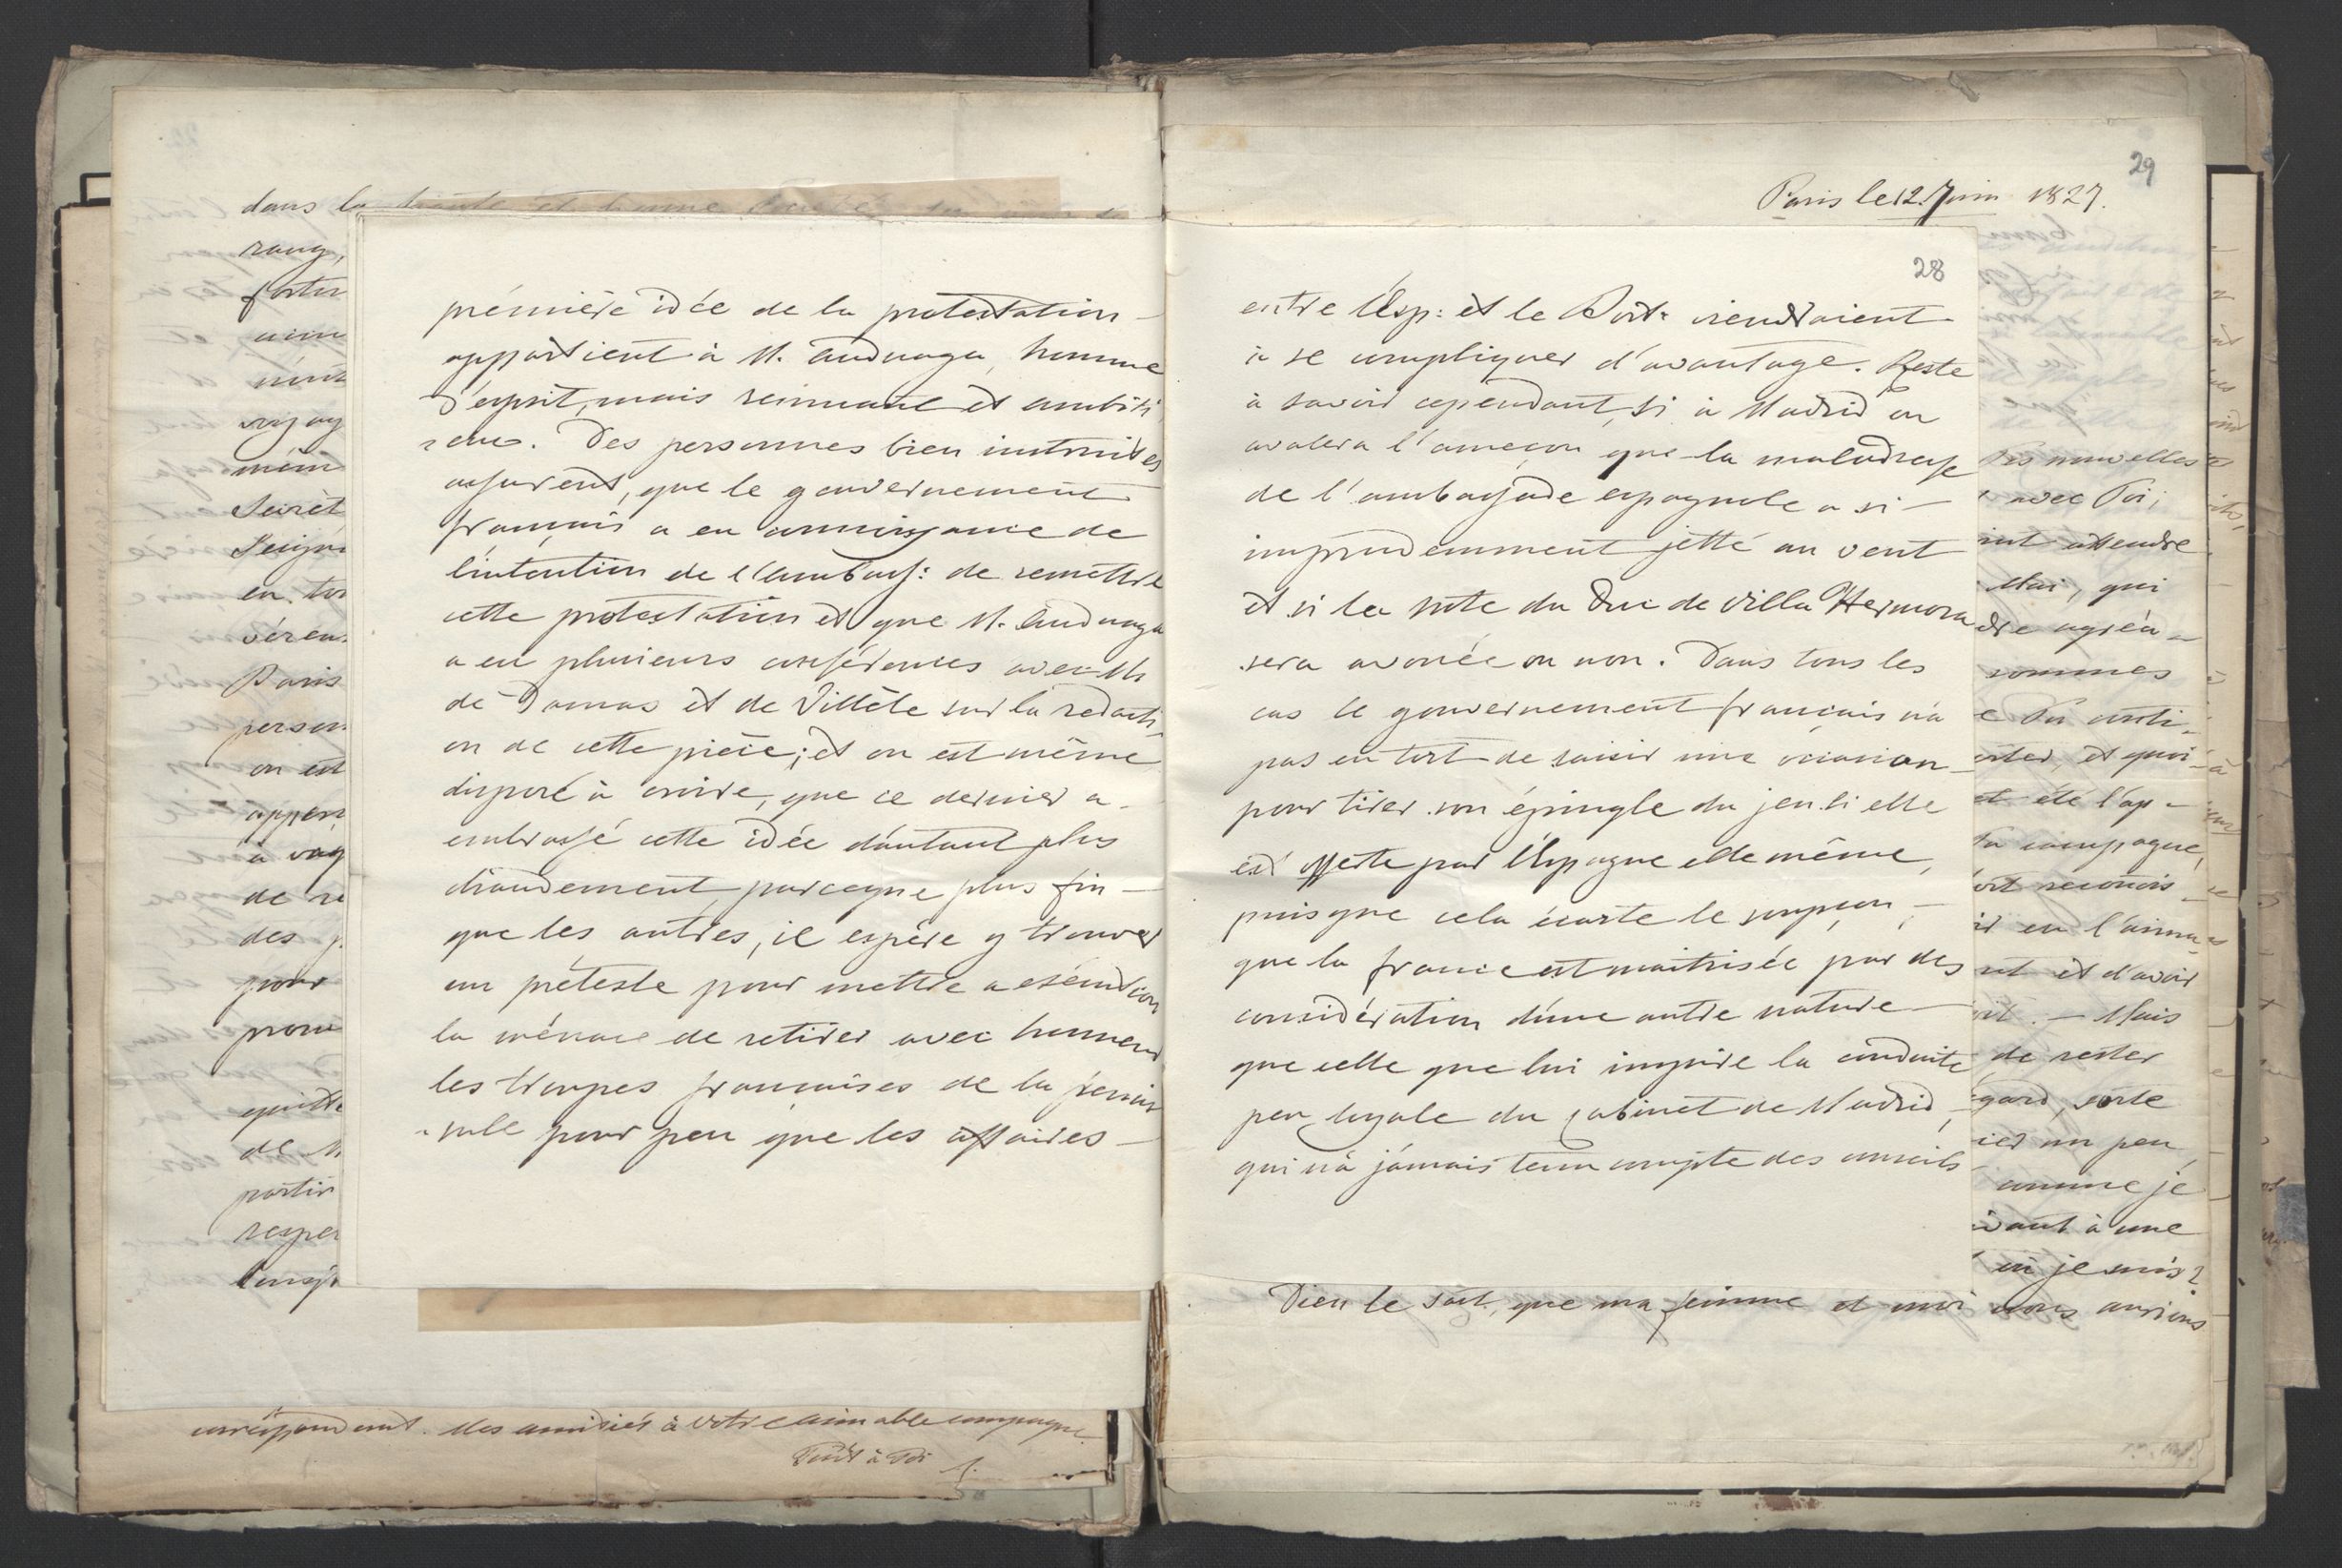 dans la
rang,
prémière idée de la protestation -
appartient à M. Anduaga, homme
d'esprit, mais remuant et ambiti
eux. Des personnes bien instruites
assurent, que le gouvernement
français a eu connaissance de
l'intention de l'Ambass: de remettre
cette protestation et que M. Anduaga
a eu plusieurs conférences avec M
de Damas et de Villèle sur la redacti
on de cette pièce; et on est même
disposé à croire, que ce dernier a -
embrassé cette idée d'autant plus
chaudement parceque plus fin -
que les autres, il espère y trouver
un préteste pour mettre a exécution
la ménace de retirer avec honneur
les troupes françaises de la penin
sule pour peu que les affaires -
mêm
Secrét
en
Paris
person
on est
à
de
des
pour
de
partir
respe
correspondant. Mes amitiés à votre aimable compagne.
Tout à Toi
29
Paris le 12. Juin 1827.
28
entre l'Esp: et le Port: viendraient
à se compliquer d'avantage. Reste
à savoir cependant, si à Madrid on
avalera l'ameçon que la maladresse
de l'ambassade espagnole a si -
imprudemment jetté au vent
et si la note du Duc de Villa Hermosa
sera avouée ou non. Dans tous les
cas le gouvernement français n'a
pas eu tort de saisir une ocasion
pour tirer son épingle du jeu si elle
est offerte par l'Espagne elle même,
puisque cela écarte le soupçon -
que la france est maitrisée par des
considération d'une autre nature -
que celle que lui inspire la conduite
peu loyale du cabinet de Madrid,
qui n'a jámais tenu compte des conseils
nouvelles
avec Toi,
attendre
Mai, qui
sommes
et quoi
été l'ap -
compagne,
en l'aima
et d'avoir
- Mais
de rester
un peu
comme je
à une
où je suis?
Dieu le sait, que ma femme et moi nous aurions